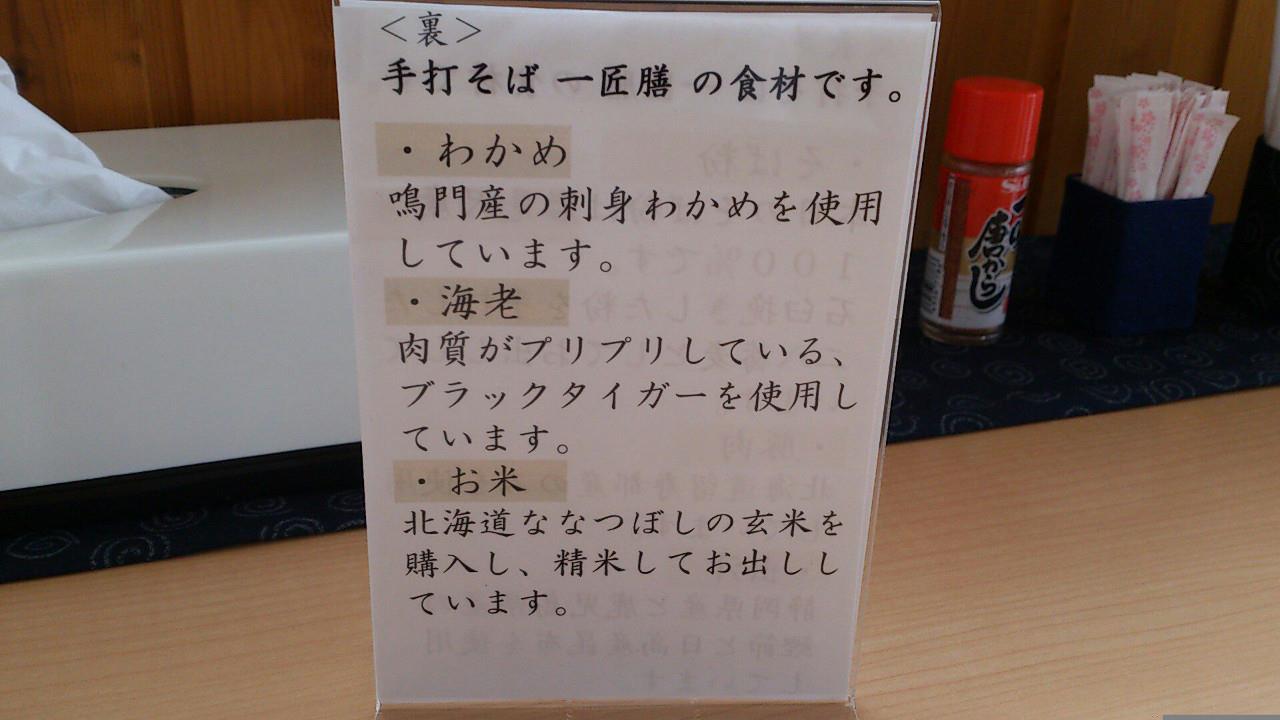 ＜裏＞
手打そば 一匠膳 の食材です。
・わかめ
鳴門産の刺身わかめを使用
しています。
・海老
肉質がプリプリしている、
ブラックタイガーを使用し
ています。
・お米
北海道ななつぼしの玄米を
購入し、精米してお出しし
ています。
S&B
唐からし